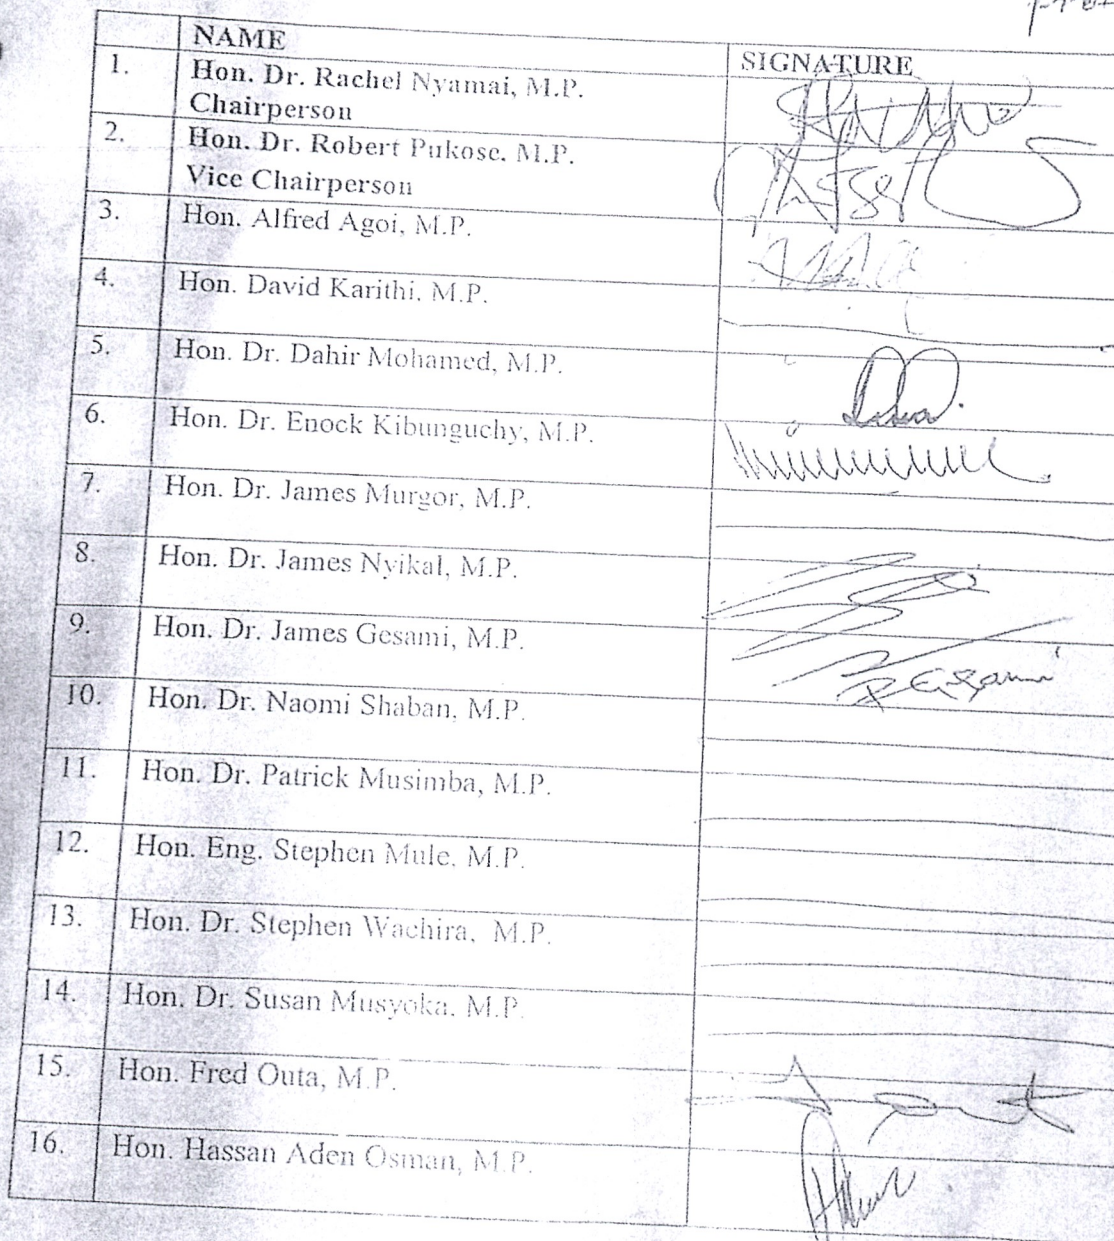 NAME
SIGNATURE
1. Hon. Dr. Rachel Nyamai, M.P.
Chairperson
2. Hon. Dr. Robert Pukose, M.P.
Vice Chairperson
3. Hon. Alfred Agoi, M.P.
4. Hon. David Karithi, M.P.
5. Hon. Dr. Dahir Mohamed, M.P.
6. Hon. Dr. Enock Kibunguchy, M.P.
7. Hon. Dr. James Murgor, M.P.
8. Hon. Dr. James Nyikal, M.P.
9. Hon. Dr. James Gesami, M.P.
10. Hon. Dr. Naomi Shaban, M.P.
11. Hon. Dr. Patrick Musimba, M.P.
12. Hon. Eng. Stephen Mule, M.P.
13. Hon. Dr. Stephen Wachira, M.P.
14. Hon. Dr. Susan Musyoka, M.P.
15. Hon. Fred Outa, M.P.
16. Hon. Hassan Aden Osman, M.P.